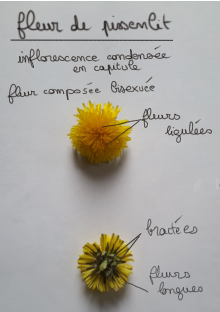 fleur de pissenlit
inflorescence condensée
en capitule
fleur composée bisexuée
fleurs
ligulées
bractées
fleurs
longues